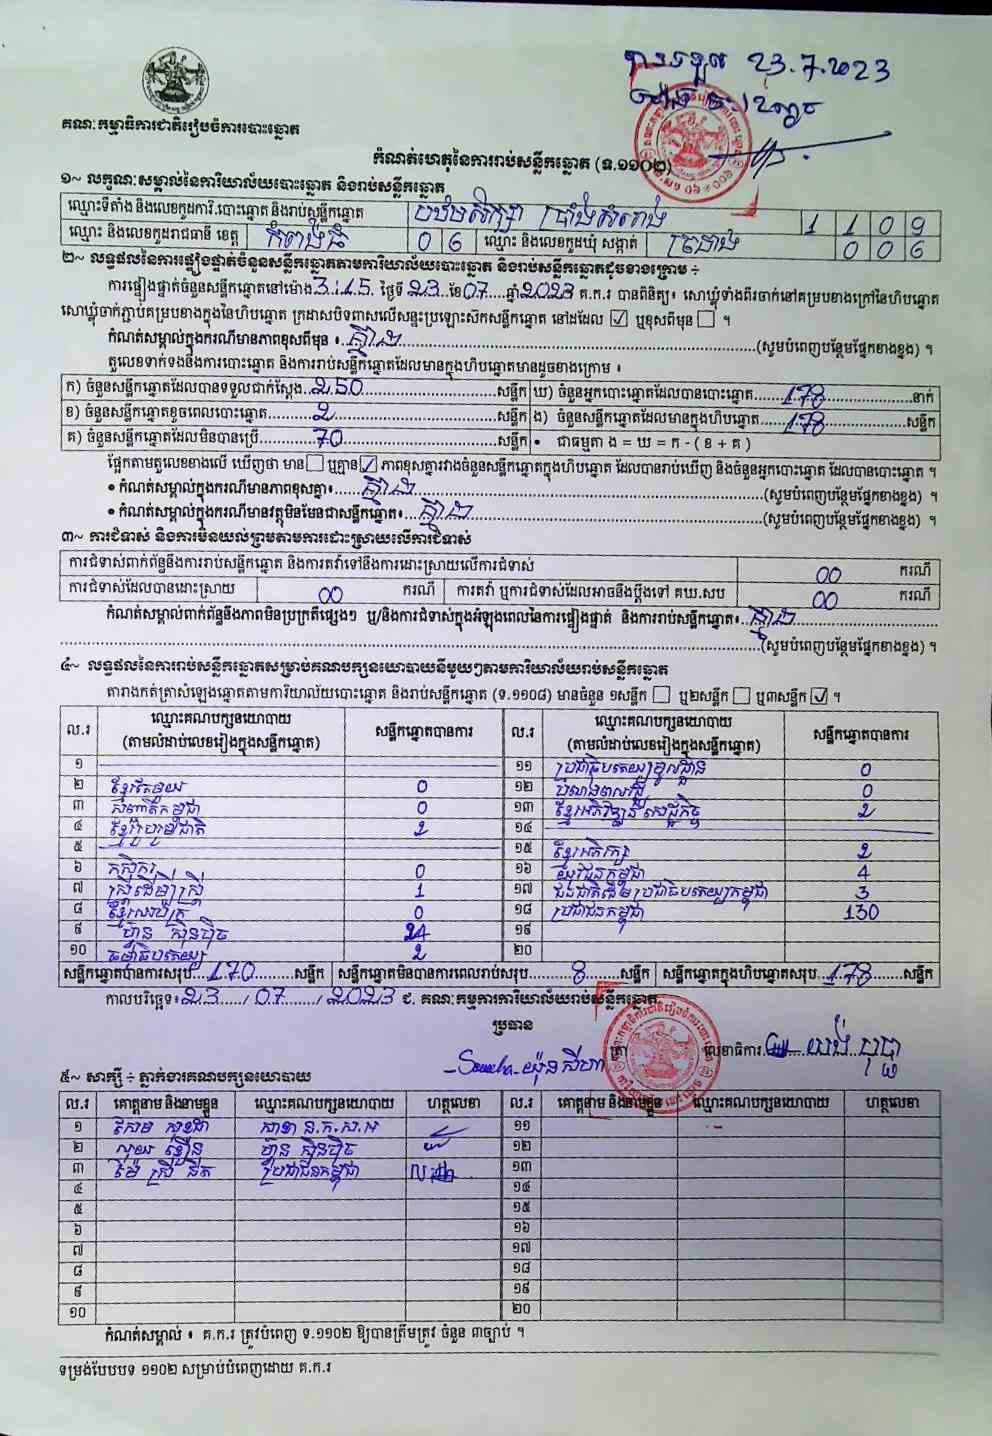 បានទទួល 23.7.2023
គណៈកម្មាធិការជាតិរៀបចំការបោះឆ្នោត
កំណត់ហេតុនៃការរាប់សន្លឹកឆ្នោត (ទ.១១០២)
១~ លក្ខណៈសម្គាល់នៃការិយាល័យបោះឆ្នោត និងរាប់សន្លឹកឆ្នោត
ឈ្មោះទីតាំង និងលេខកូដការិ.បោះឆ្នោត និងរាប់សន្លឹកឆ្នោត បឋមសិក្សា ប្រាំងសំរោង 1 1 0 9
ឈ្មោះ និងលេខកូដរាជធានី ខេត្ត កំពង់ធំ 0 6 ឈ្មោះ និងលេខកូដឃុំ សង្កាត់ 0 0 6
២~ លទ្ធផលនៃការផ្ទៀងផ្ទាត់ចំនួនសន្លឹកឆ្នោតតាមការិយាល័យបោះឆ្នោត និងរាប់សន្លឹកឆ្នោតដូចខាងក្រោម ៖
ការផ្ទៀងផ្ទាត់ចំនួនសន្លឹកឆ្នោតនៅម៉ោង 3:15 ថ្ងៃទី 23 ខែ 07 ឆ្នាំ 2023 គ.ក.រ បានពិនិត្យ៖ សោឃ្លុំទាំងពីរចាក់នៅគម្របខាងក្រៅនៃហិបឆ្នោត
សោឃ្លុំចាក់ភ្ជាប់គម្របខាងក្នុងនៃហិបឆ្នោត ក្រដាសបិទពាសលើសន្ទះប្រឡោះសិកសន្លឹកឆ្នោត នៅដដែល ☑ ឬខុសពីមុន ☐ ។
កំណត់សម្គាល់ក្នុងករណីមានភាពខុសពីមុន ៖ គ្មាន (សូមបំពេញបន្ថែមផ្នែកខាងខ្នង) ។
តួលេខទាក់ទងនឹងការបោះឆ្នោត និងការរាប់សន្លឹកឆ្នោតដែលមានក្នុងហិបឆ្នោតមានដូចខាងក្រោម ៖
ក) ចំនួនសន្លឹកឆ្នោតដែលបានទទួលជាក់ស្តែង 250 សន្លឹក ឃ) ចំនួនអ្នកបោះឆ្នោតដែលបានបោះឆ្នោត 178 នាក់
ខ) ចំនួនសន្លឹកឆ្នោតខូចពេលបោះឆ្នោត 2 សន្លឹក ង) ចំនួនសន្លឹកឆ្នោតដែលមានក្នុងហិបឆ្នោត 178 សន្លឹក
គ) ចំនួនសន្លឹកឆ្នោតដែលមិនបានប្រើ 70 សន្លឹក • ជាធម្មតា ង = ឃ = ក - ( ខ + គ )
ផ្អែកតាមតួលេខខាងលើ ឃើញថា មាន ☐ ឬគ្មាន ☑ ភាពខុសគ្នារវាងចំនួនសន្លឹកឆ្នោតក្នុងហិបឆ្នោត ដែលបានរាប់ឃើញ និងចំនួនអ្នកបោះឆ្នោត ដែលបានបោះឆ្នោត ។
• កំណត់សម្គាល់ក្នុងករណីមានភាពខុសគ្នា៖ គ្មាន (សូមបំពេញបន្ថែមផ្នែកខាងខ្នង) ។
• កំណត់សម្គាល់ក្នុងករណីមានវត្ថុមិនមែនជាសន្លឹកឆ្នោត៖ គ្មាន (សូមបំពេញបន្ថែមផ្នែកខាងខ្នង) ។
៣~ ការជំទាស់ និងការមិនយល់ព្រមតាមការដោះស្រាយលើការជំទាស់
ការជំទាស់ពាក់ព័ន្ធនឹងការរាប់សន្លឹកឆ្នោត និងការតវ៉ាទៅនឹងការដោះស្រាយលើការជំទាស់ 00 ករណី
ការជំទាស់ដែលបានដោះស្រាយ 00 ករណី ការតវ៉ា ឬការជំទាស់ដែលអាចនឹងប្តឹងទៅ គឃ.សប 00 ករណី
កំណត់សម្គាល់ពាក់ព័ន្ធនឹងភាពមិនប្រក្រតីផ្សេងៗ ឬ/និងការជំទាស់ក្នុងអំឡុងពេលនៃការផ្ទៀងផ្ទាត់ និងការរាប់សន្លឹកឆ្នោត៖ គ្មាន
(សូមបំពេញបន្ថែមផ្នែកខាងខ្នង) ។
៤~ លទ្ធផលនៃការរាប់សន្លឹកឆ្នោតសម្រាប់គណបក្សនយោបាយនីមួយៗតាមការិយាល័យរាប់សន្លឹកឆ្នោត
តារាងកត់ត្រាសំឡេងឆ្នោតតាមការិយាល័យបោះឆ្នោត និងរាប់សន្លឹកឆ្នោត (ទ.១១០៨) មានចំនួន ១សន្លឹក ☐ ឬ២សន្លឹក ☐ ឬ៣សន្លឹក ☑ ។
ល.រ ឈ្មោះគណបក្សនយោបាយ (តាមលំដាប់លេខរៀងក្នុងសន្លឹកឆ្នោត) សន្លឹកឆ្នោតបានការ ល.រ ឈ្មោះគណបក្សនយោបាយ (តាមលំដាប់លេខរៀងក្នុងសន្លឹកឆ្នោត) សន្លឹកឆ្នោតបានការ
១ ១១ ប្រជាធិបតេយ្យមូលដ្ឋាន 0
២ ខ្មែរតែមួយ 0 ១២ 0
៣ សញ្ជាតិកម្ពុជា 0 ១៣ ខ្មែរអភិវឌ្ឍន៍សេដ្ឋកិច្ច 2
៤ ខ្មែររួបរួមជាតិ 2 ១៤
៥ ១៥ ខ្មែរអភិរក្ស 2
៦ កសិករ 0 ១៦ យុវជនកម្ពុជា 4
៧ ស្ត្រីដើម្បីស្ត្រី 1 ១៧ ជនជាតិដើមប្រជាធិបតេយ្យកម្ពុជា 3
៨ ខ្មែរឈប់ក្រ 0 ១៨ ប្រជាជនកម្ពុជា 130
៩ ហ៊្វុនស៊ិនប៉ិច 24 ១៩
១០ ធម្មាធិបតេយ្យ 2 ២០
សន្លឹកឆ្នោតបានការសរុប 170 សន្លឹក សន្លឹកឆ្នោតមិនបានការពេលរាប់សរុប 8 សន្លឹក សន្លឹកឆ្នោតក្នុងហិបឆ្នោតសរុប 178 សន្លឹក
កាលបរិច្ឆេទ៖ 23 / 07 / 2023 ជ. គណៈកម្មការការិយាល័យរាប់សន្លឹកឆ្នោត
ប្រធាន
យ៉ុន សីហា ត្រា លេខាធិការ យង់ បុប្ផា
៥~ សាក្សី ៖ ភ្នាក់ងារគណបក្សនយោបាយ
ល.រ គោត្តនាម និងនាមខ្លួន ឈ្មោះគណបក្សនយោបាយ ហត្ថលេខា ល.រ គោត្តនាម និងនាមខ្លួន ឈ្មោះគណបក្សនយោបាយ ហត្ថលេខា
១ ១១
២ ហ៊្វុនស៊ិនប៉ិច ១២
៣ ម៉ៃ ស្រី និត ប្រជាជនកម្ពុជា ១៣
៤ ១៤
៥ ១៥
៦ ១៦
៧ ១៧
៨ ១៨
៩ ១៩
១០ ២០
កំណត់សម្គាល់ ៖ គ.ក.រ ត្រូវបំពេញ ទ.១១០២ ឱ្យបានត្រឹមត្រូវ ចំនួន ៣ច្បាប់ ។
ទម្រង់បែបបទ ១១០២ សម្រាប់បំពេញដោយ គ.ក.រ